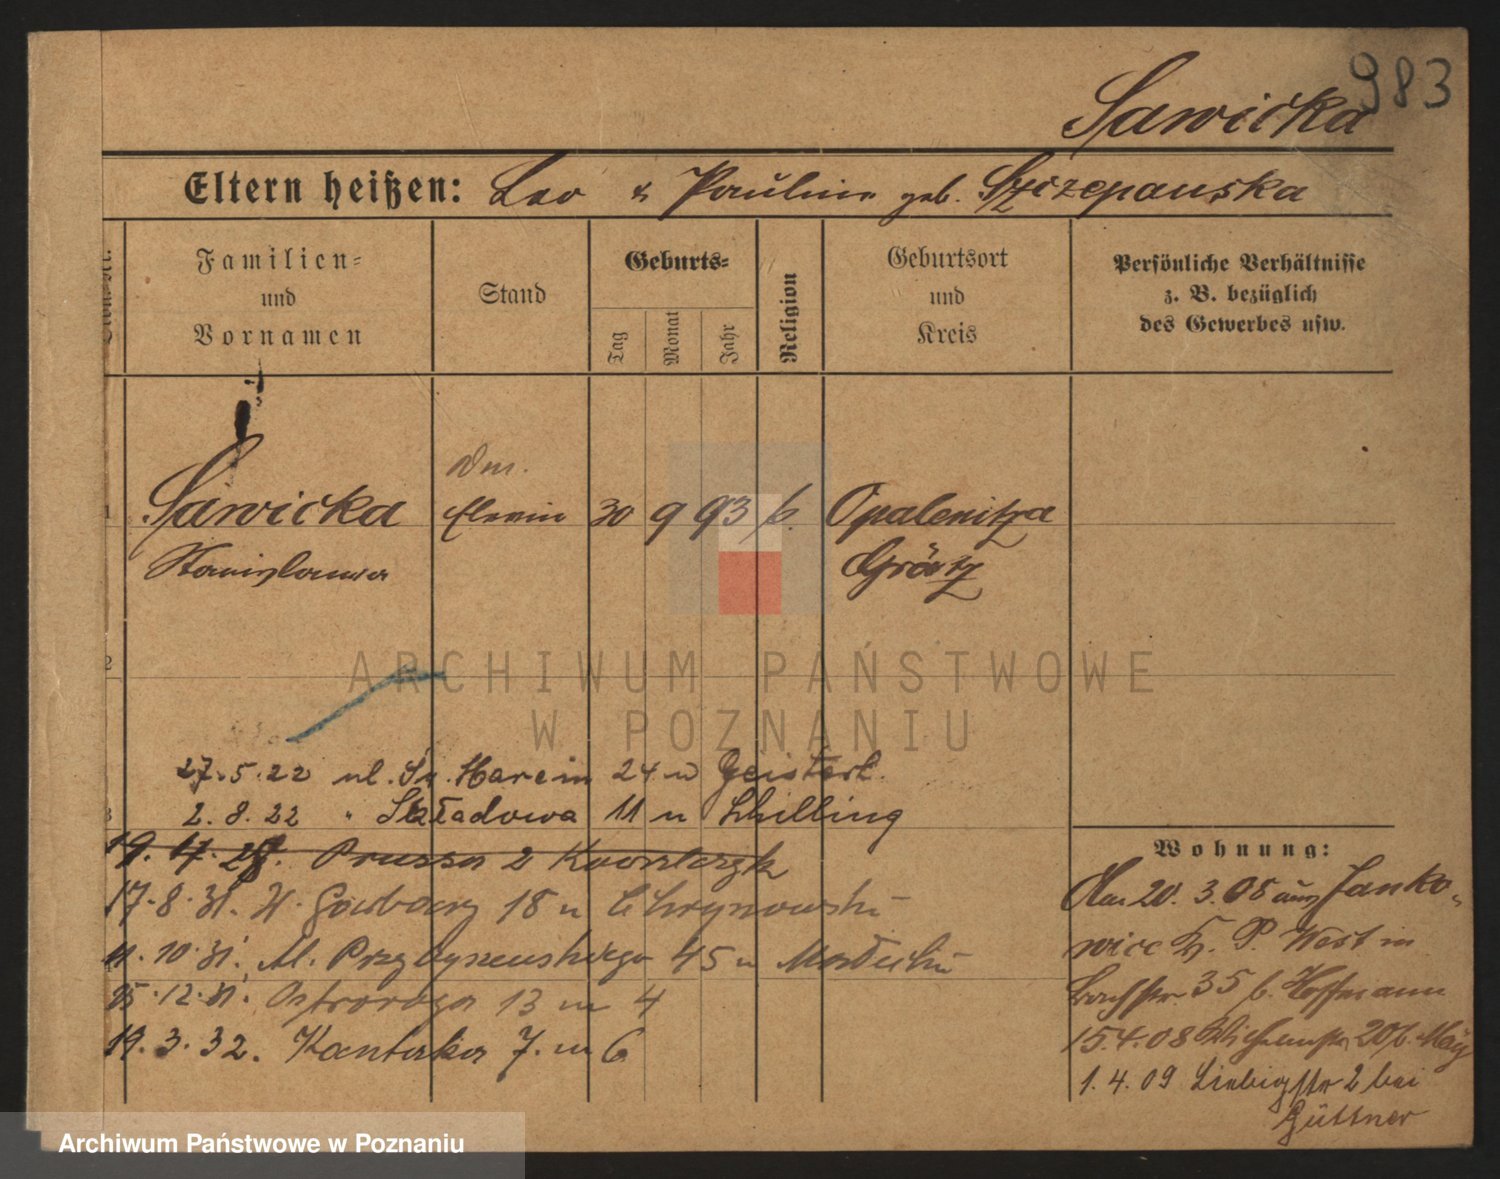 983
Sawicka
Eltern heißen: Leo & Pauline geb. Szczepanska
Familien= und Vornamen
Stand
Geburts=
Tag
Monat
Jahr
Religion
Geburtsort und Kreis
Persönliche Verhältnisse z. B. bezüglich des Gewerbes usw.
1
Sawicka
30 9 93 k.
Opalenitza
Stanislawa
Grätz
2
ARCHIWUM PAŃSTWOWE
W POZNANIU
27.5.22 ul. Św. Marcin 24 u Geistert.
3
2.8.22 " Składowa 11 u Schilling
Prusa 2
17.8.31. W. Garbary 18 u Chrzanowski
11.10.31. Al. Przybyszewskiego 45 u Małecki
15.12.31. Ostroroga 13 m 4
19.3.32. Kantaka 7. m 6
Wohnung:
20.3.05 aus Janko-
wice Kr. P. West in
35 b. Hoffmann
15.4.08 20 b.
1.4.09 Liebigstr 2 bei
Güttner
Archiwum Państwowe w Poznaniu